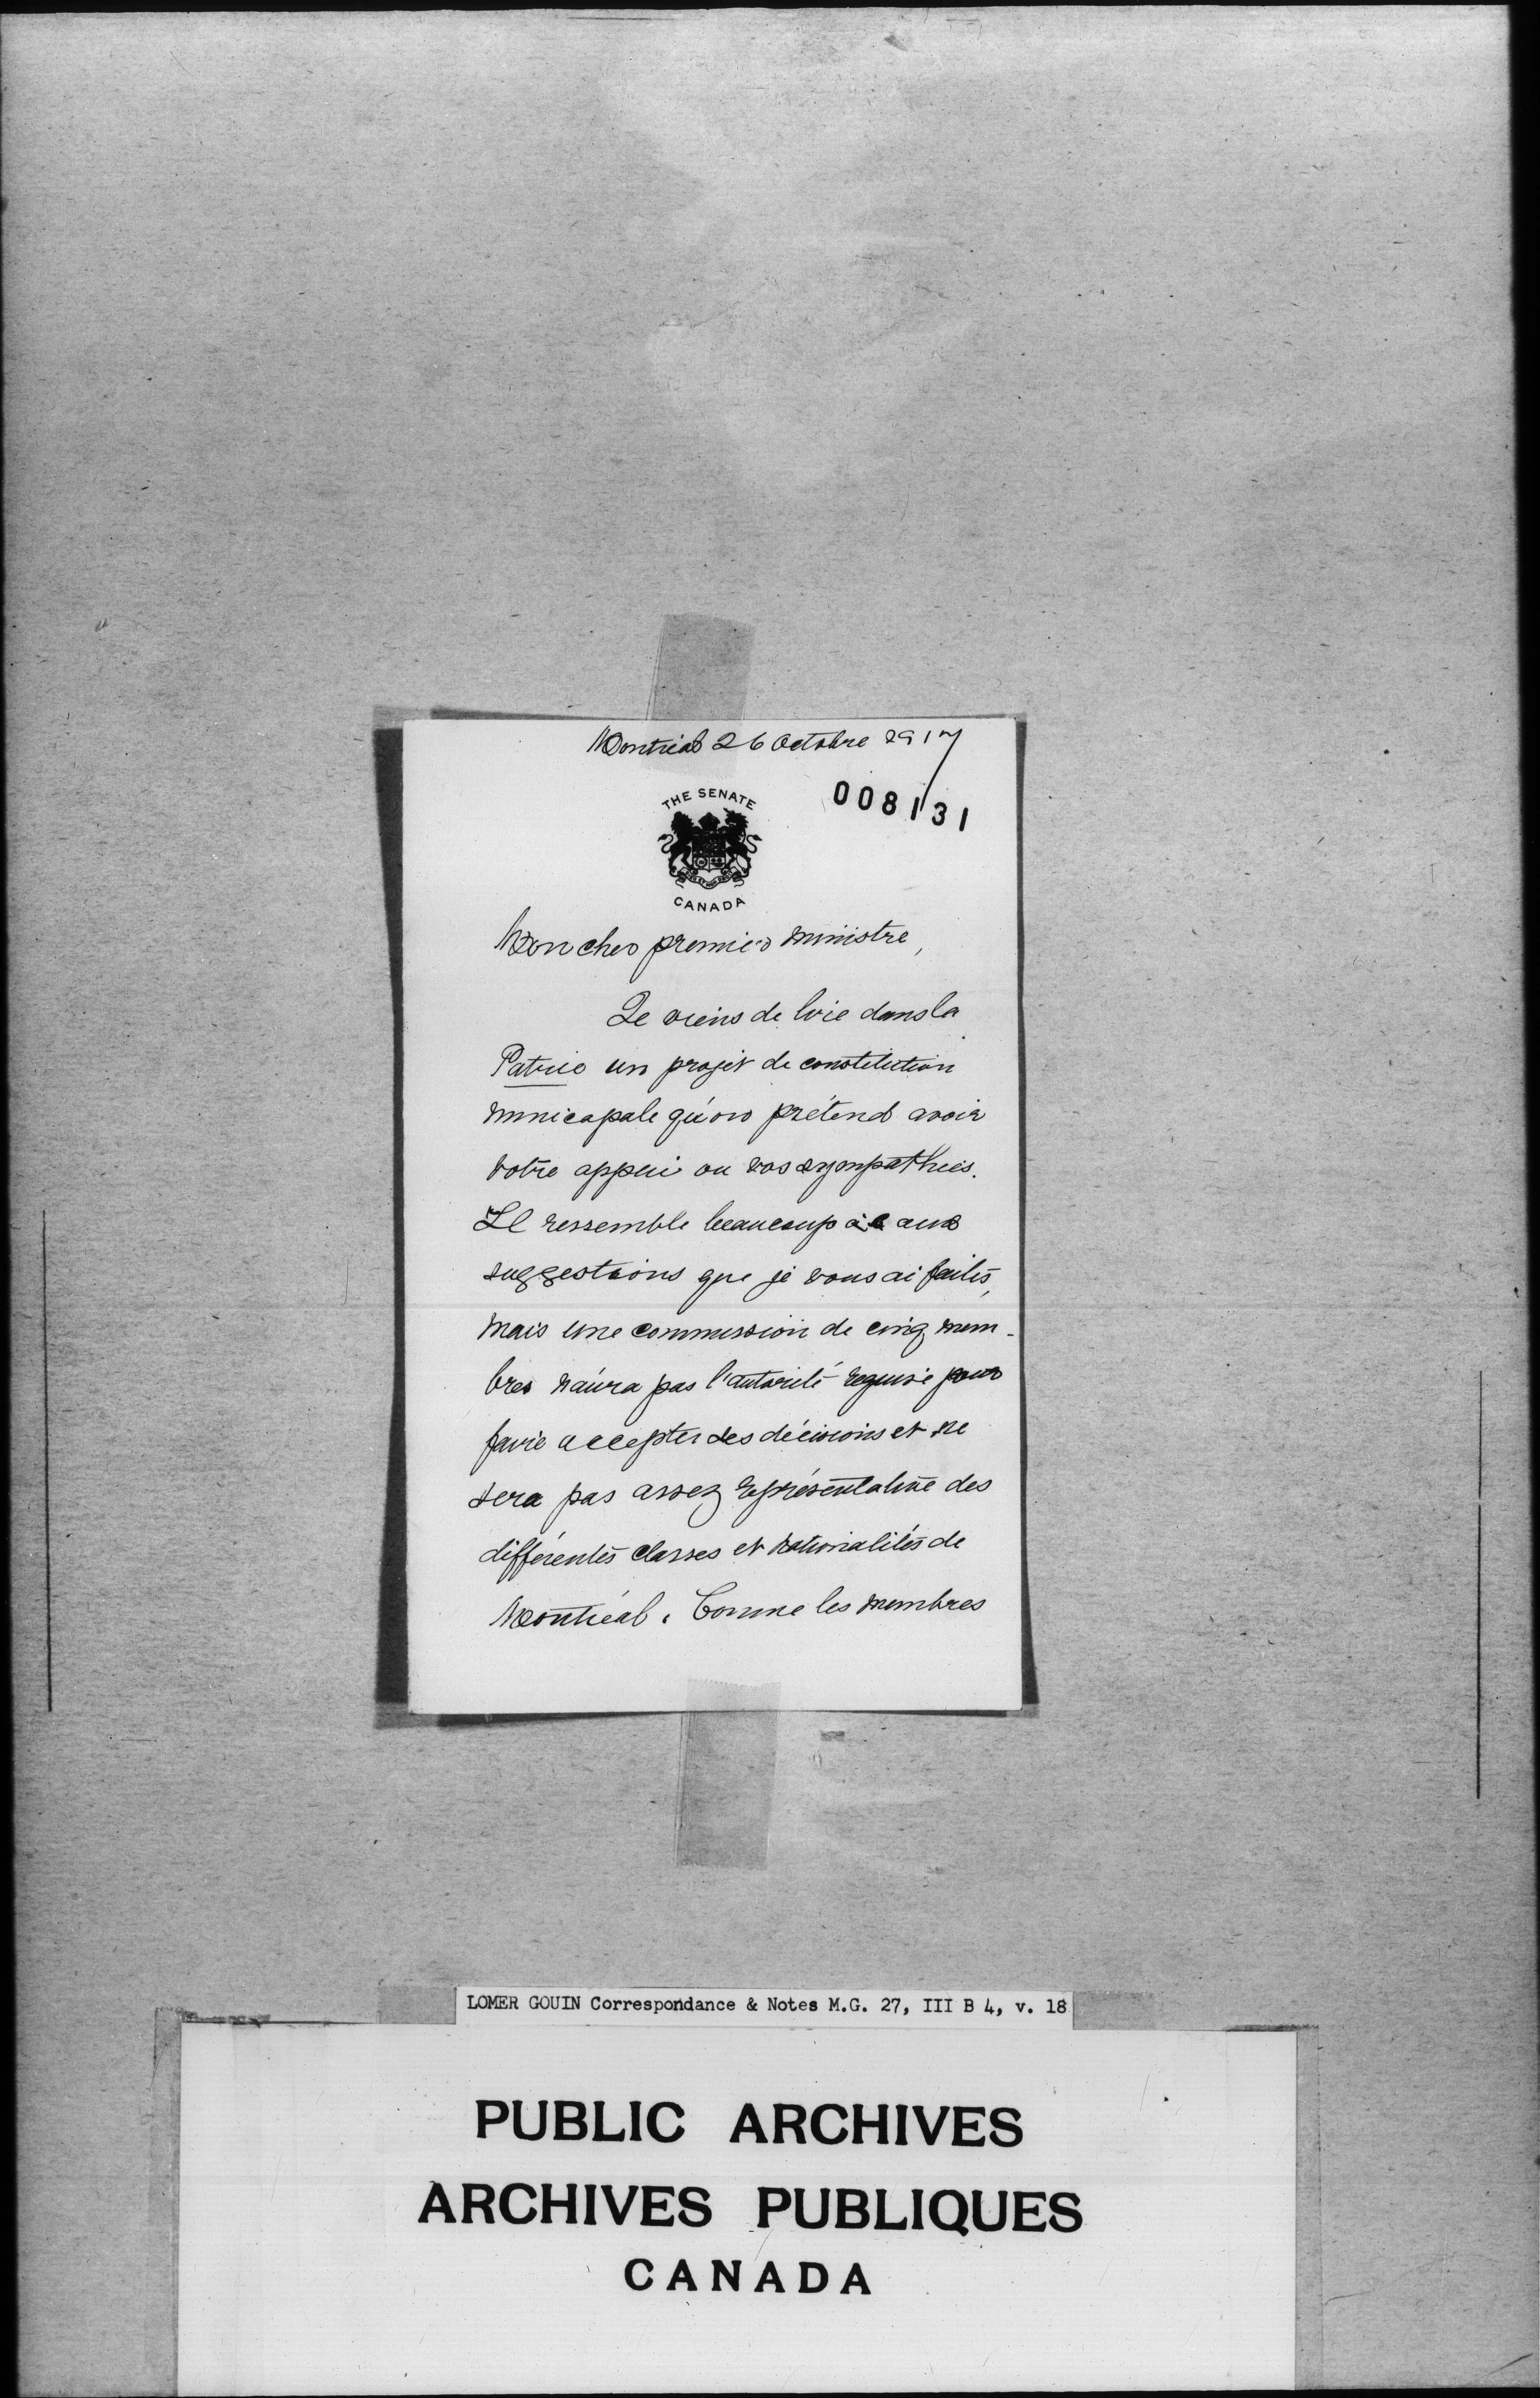 Montréal 26 Octobre 1917
008131
THE SENATE
CANADA
Mon cher premier ministre,
Je viens de lire dans la
Patrie un projet de constitution
municapale qu'on prétend avoir
votre appui ou vos sympathies.
Il ressemble beaucoup à aux
suggestions que je vous ai faites,
mais une commission de cinq mem-
bres n'aura pas l'autorité requise pour
faire accepter ses décisions et ne
sera pas assez représentative des
différentes classes et nationalités de
Montréal. Comme les membres
LOMER GOUIN Correspondance & Notes M.G. 27, III B 4, v. 18
PUBLIC ARCHIVES
ARCHIVES PUBLIQUES
CANADA